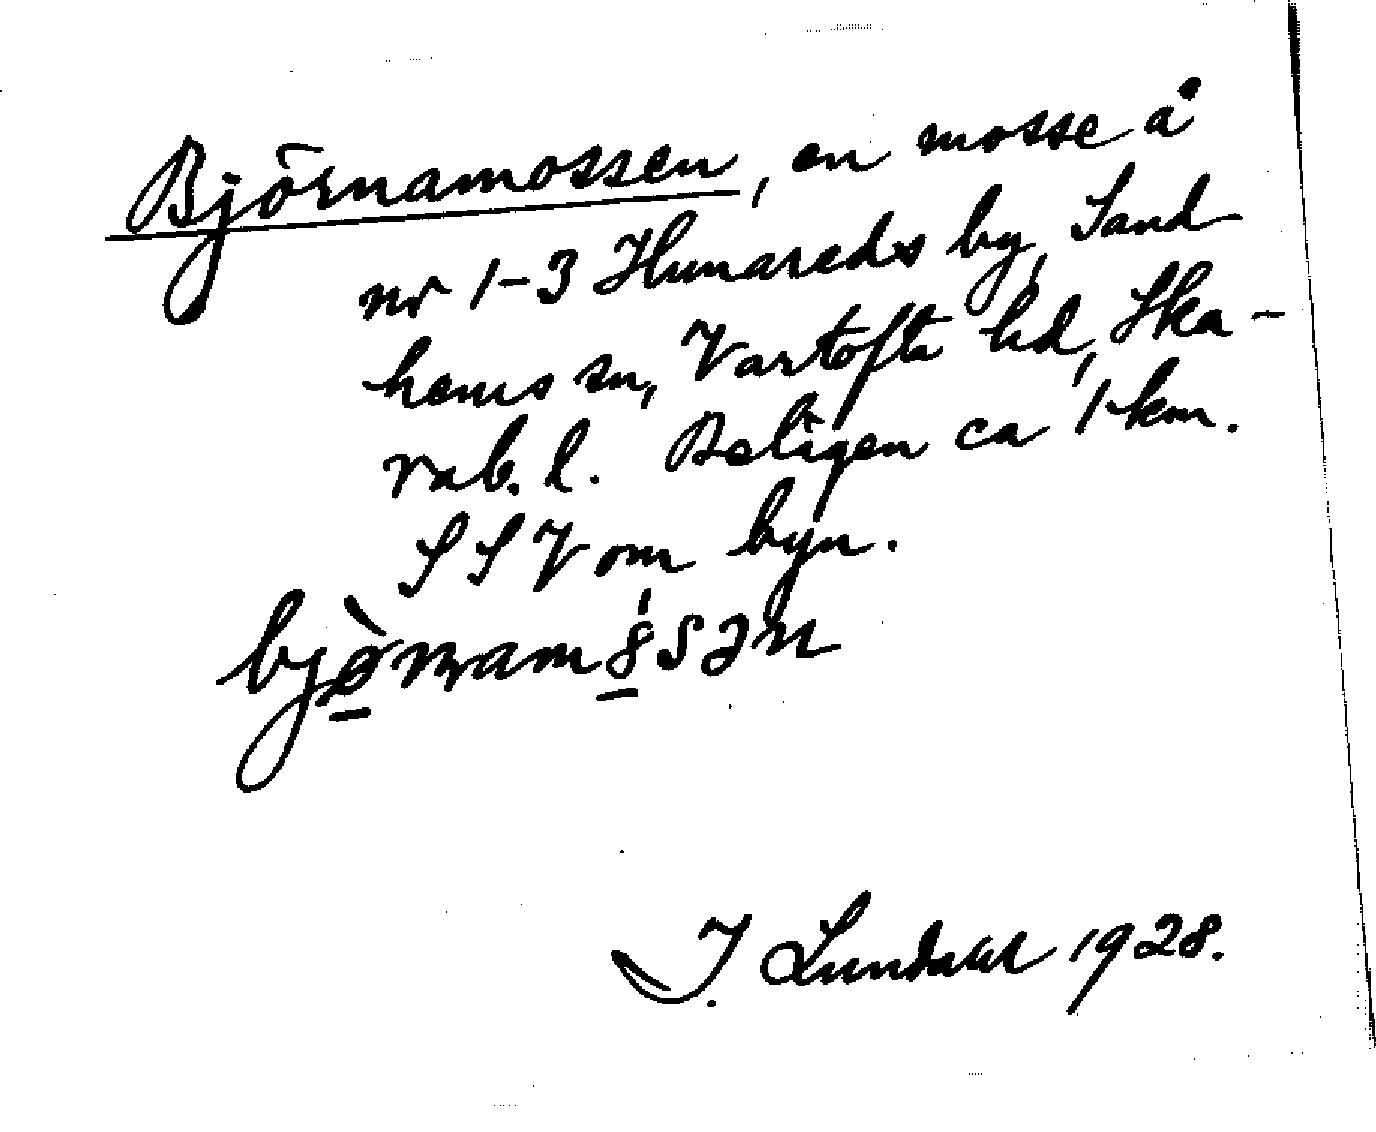 Björnamossen, en mosse å
nr 1-3 Humareds by, Sand
hems sn, Vartofta hd, Ska-
rab. l. Belägen ca 1 km.
SSV om byn.
bjø̀rnam
I. Lundahl 1928.